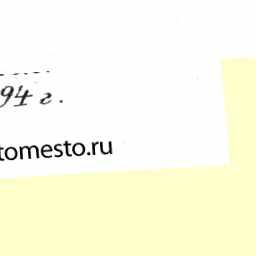 94 г.
tomesto.ru